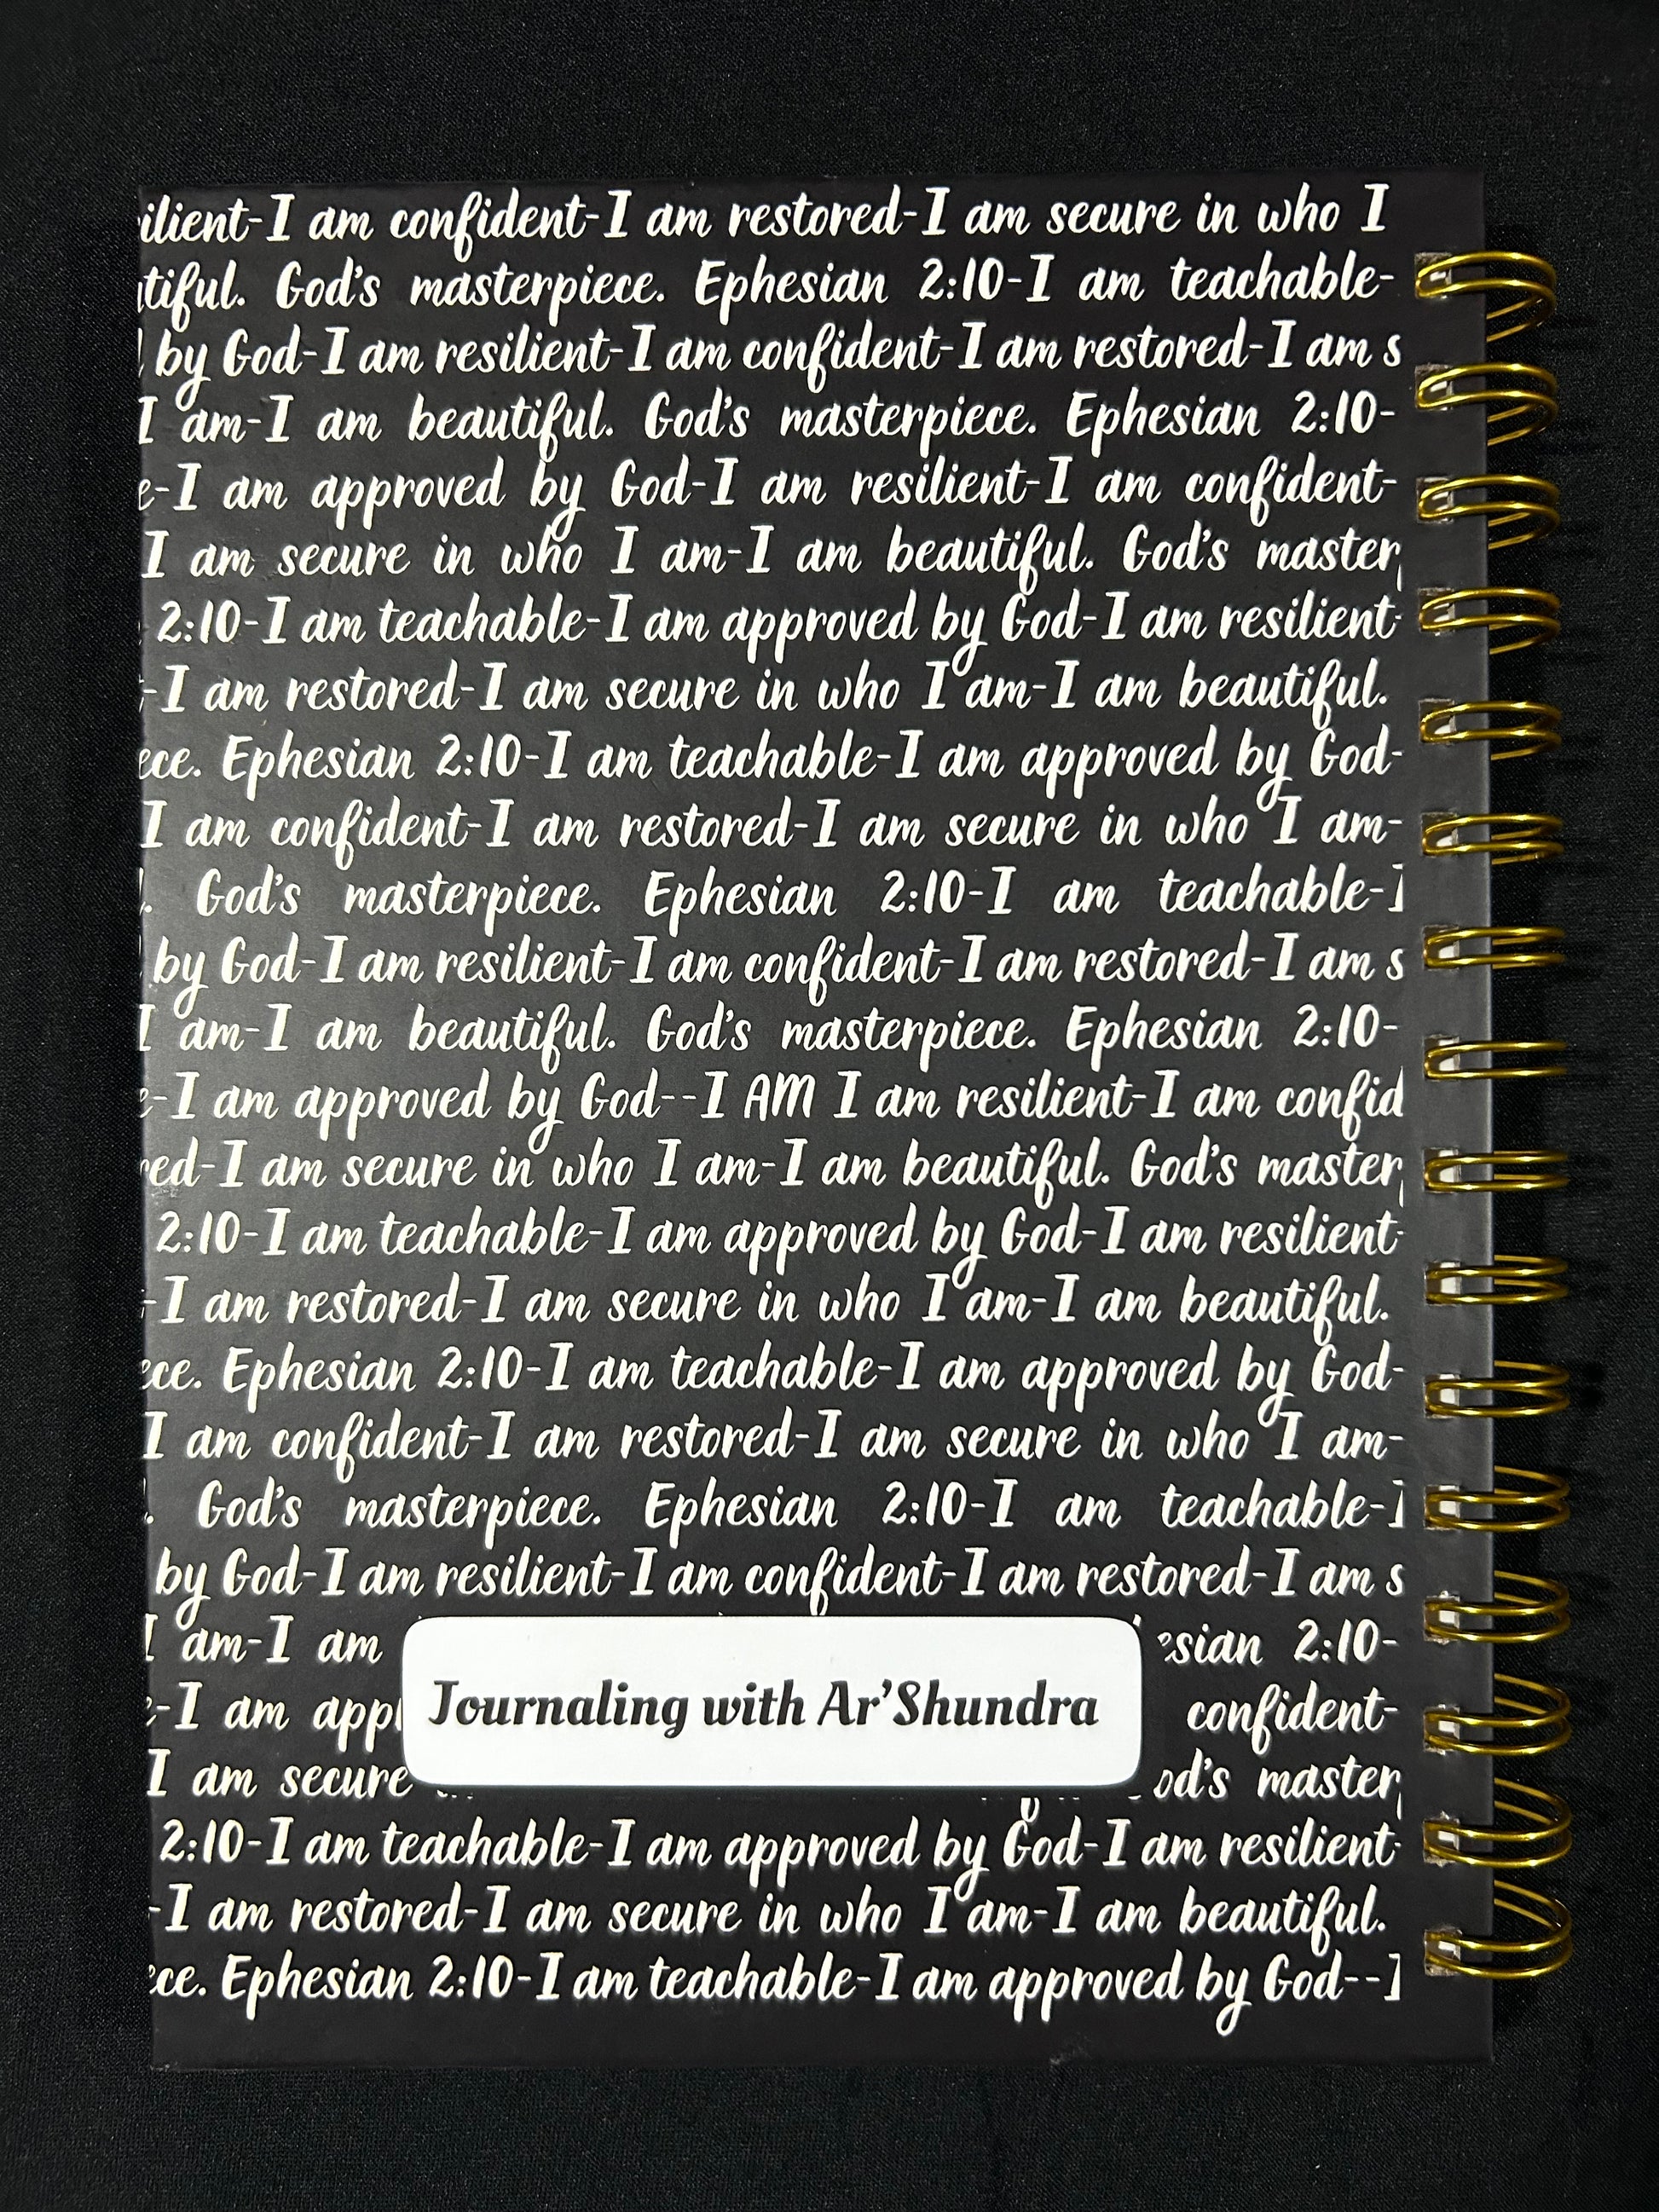 ilient-I am confident-I am restored-I am secure in who I
tiful. God's masterpiece. Ephesian 2:10-I am teachable-
by God-I am resilient-I am confident-I am restored-I am s
I am-I am beautiful. God's masterpiece. Ephesian 2:10-
e-I am approved by God-I am resilient-I am confident-
I am secure in who I am-I am beautiful. God's master
2:10-I am teachable-I am approved by God-I am resilient-
-I am restored-I am secure in who I am-I am beautiful.
ece. Ephesian 2:10-I am teachable-I am approved by God-
I am confident-I am restored-I am secure in who I am-
. God's masterpiece. Ephesian 2:10-I am teachable-I
by God-I am resilient-I am confident-I am restored-I am s
I am-I am beautiful. God's masterpiece. Ephesian 2:10-
e-I am approved by God--I AM I am resilient-I am confid
red-I am secure in who I am-I am beautiful. God's master
2:10-I am teachable-I am approved by God-I am resilient-
-I am restored-I am secure in who I am-I am beautiful.
ece. Ephesian 2:10-I am teachable-I am approved by God-
I am confident-I am restored-I am secure in who I am-
. God's masterpiece. Ephesian 2:10-I am teachable-I
by God-I am resilient-I am confident-I am restored-I am s
I am-I am esian 2:10-
e-I am app confident-
Journaling with Ar'Shundra
I am secure od's master
2:10-I am teachable-I am approved by God-I am resilient-
-I am restored-I am secure in who I am-I am beautiful.
ce. Ephesian 2:10-I am teachable-I am approved by God--I